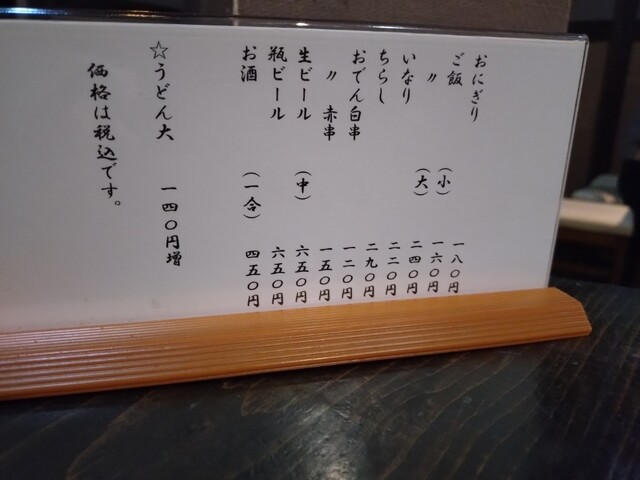 おにぎり 一八〇円
ご飯 (小) 一六〇円
〃 (大) 二四〇円
いなり 二二〇円
ちらし 二九〇円
おでん白串 一二〇円
〃 赤串 一五〇円
生ビール (中) 六五〇円
瓶ビール 六五〇円
お酒 (一合) 四五〇円
☆うどん大 一四〇円増
価格は税込です。